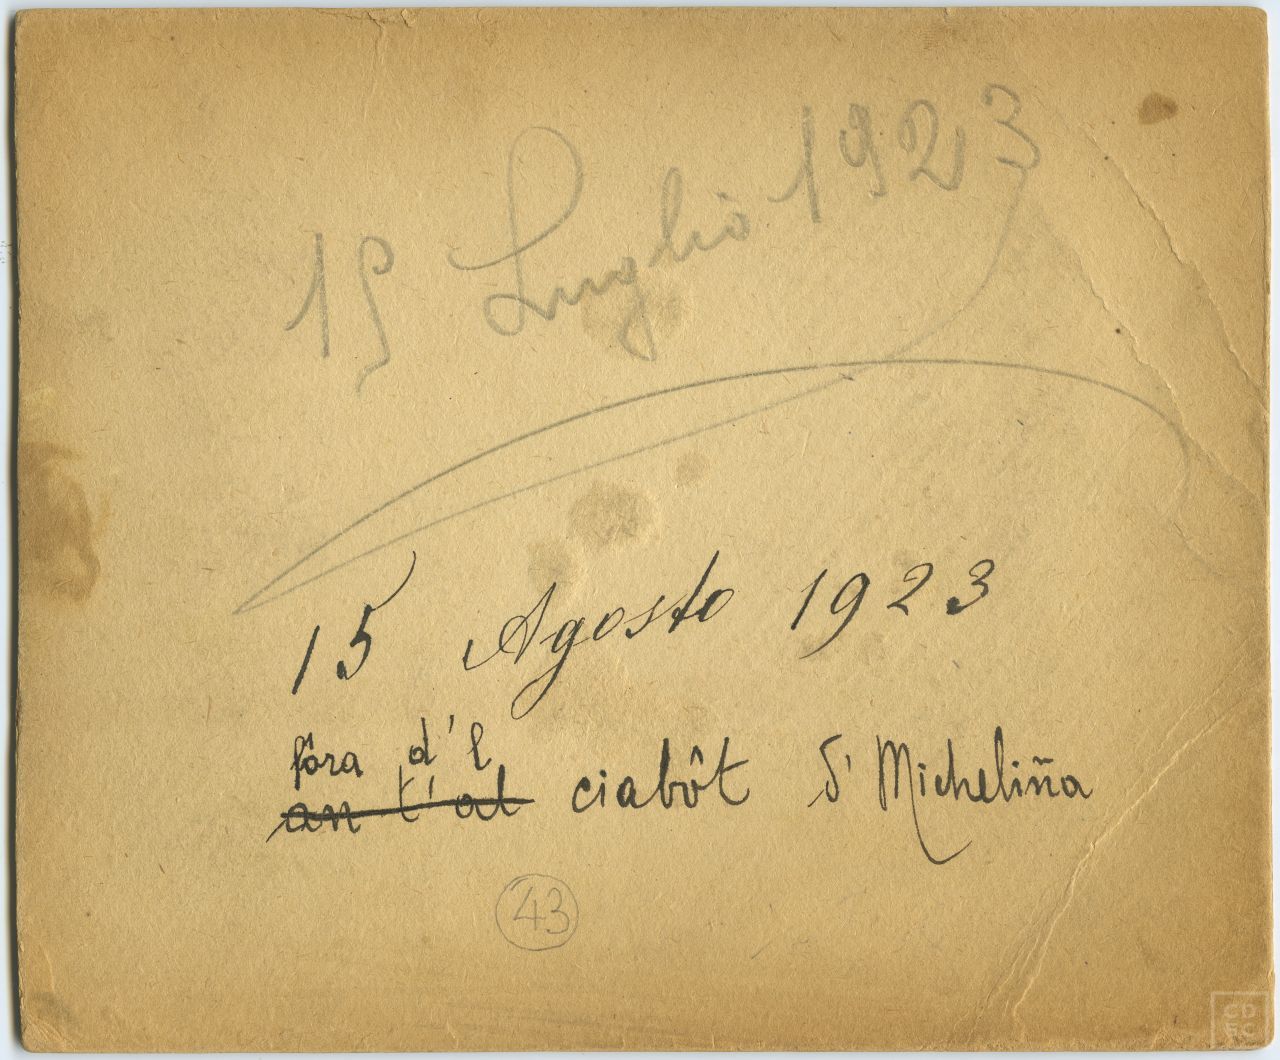 15 Luglio 1923
15 Agosto 1923
fôra d'l
an t'al ciabôt d' Micheliña
43
CD
EC